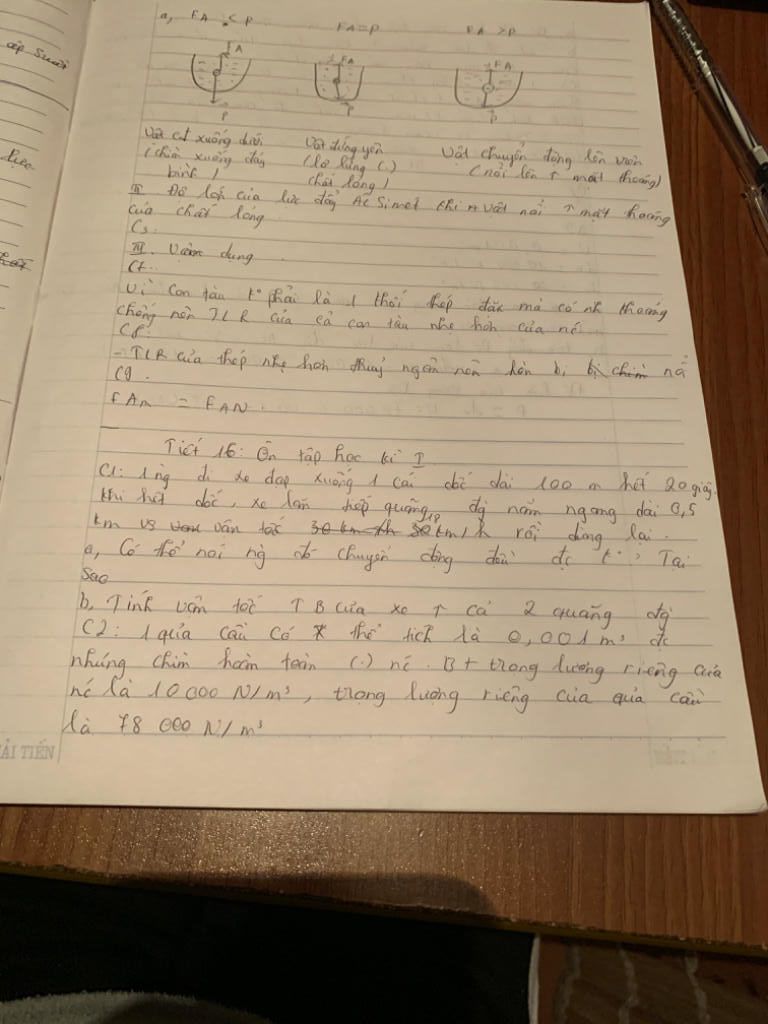 áp suất
được
a, FA < P FA = P FA > P
A FA FA
P P P
Vật cđ xuống dưới Vật đứng yên Vật chuyển động lên trên
(chìm xuống đáy (lơ lửng (.) (nổi lên ↑ mặt thoáng)
bình) chất lỏng)
II Độ lớn của lực đẩy Ac Si met khi vật nổi ↑ mặt thoáng
của chất lỏng
C3:
III. Vận dụng
C7:
Vì con tàu t° phải là 1 thỏi thép đặc mà có nh khoảng
chống nên TLR của cả con tàu nhẹ hơn của nc
C8:
- TLR của thép nhẹ hơn thuỷ ngân nên hòn bi bị chìm nổ
C9.
FAM = FAN.
Tiết 16: Ôn tập học kì I
C1: 1 ng đi xe đạp xuống 1 cái dốc dài 100 m hết 20 giây.
khi hết dốc, xe lăn tiếp quãng đg nằm ngang dài 0,5
km vs vận tốc 30 km/h 18 km/h rồi dừng lại.
a, Có thể nói ng đó chuyển động đều đc t°? Tại
sao
b, Tính vận tốc TB của xe ↑ cả 2 quãng đg
C2: 1 quả cầu có thể tích là 0,001 m³ đc
nhúng chìm hoàn toàn (.) nc. B+ trọng lương riêng của
nc là 10 000 N/m³, trọng lương riêng của quả cầu
là 78 000 N/m³
ẢI TIẾN